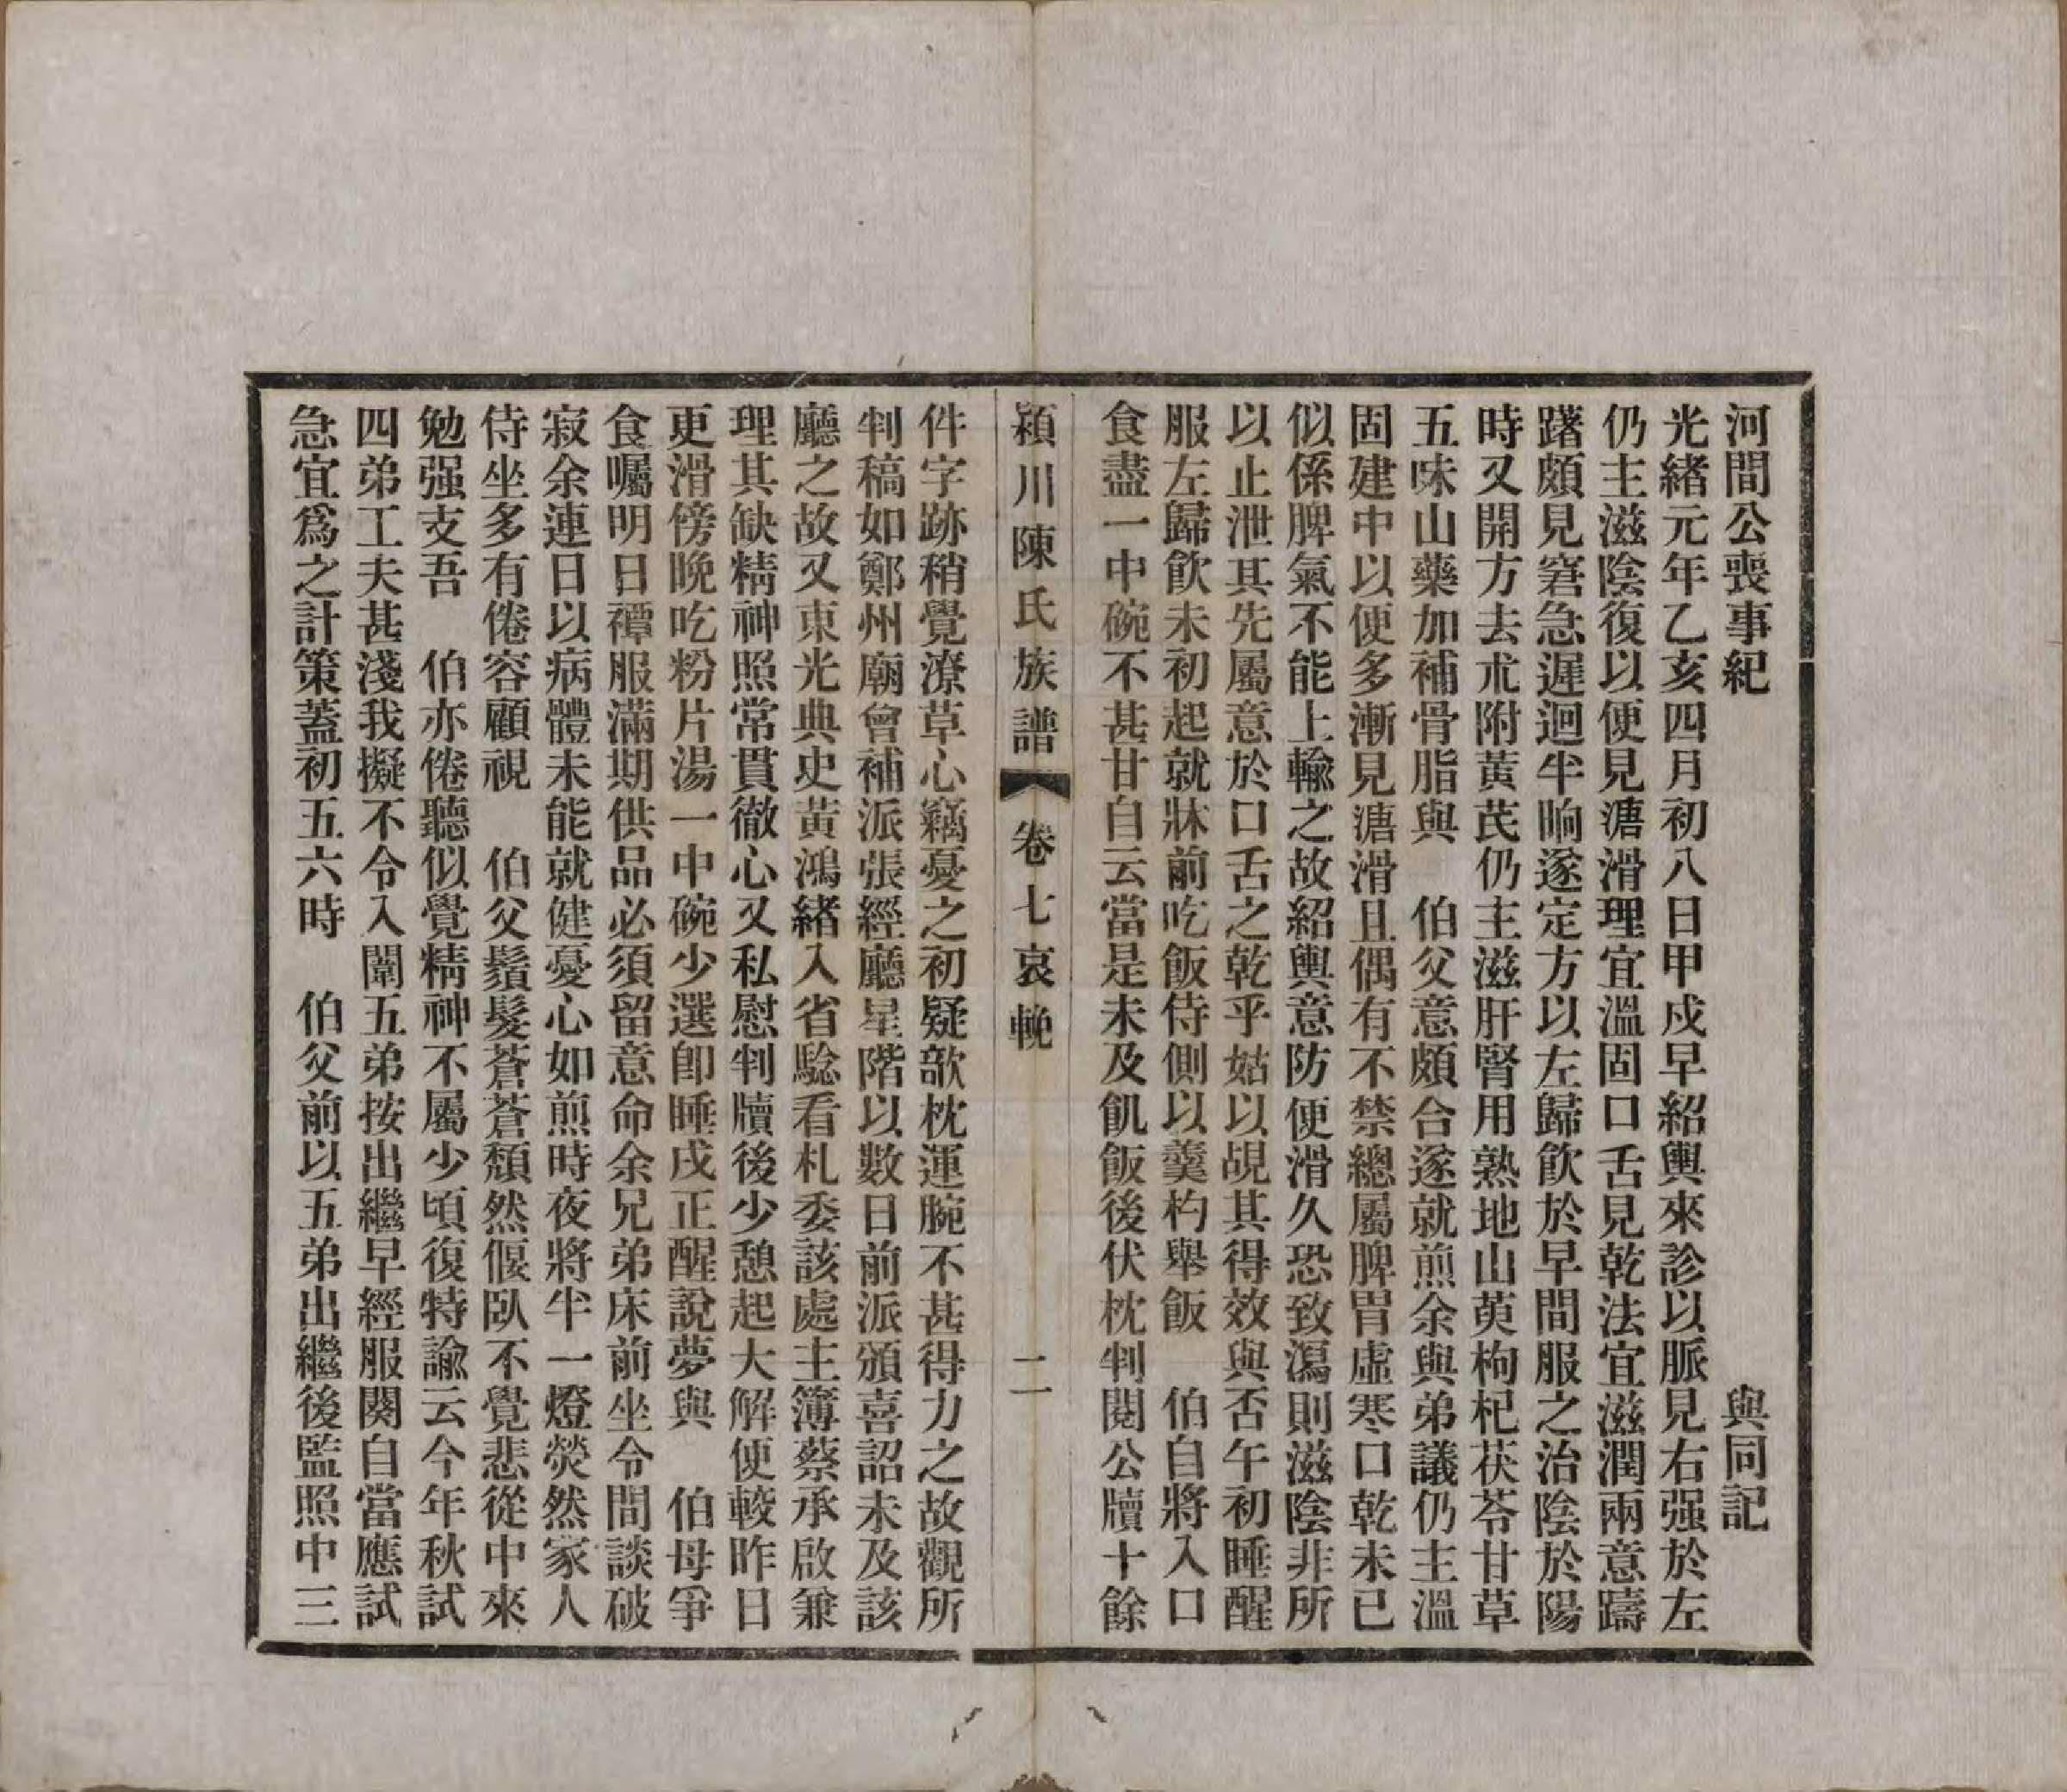 河間公喪事紀　與同記
光緒元年乙亥四月初八日甲戌早紹輿來診以脈見右强於左
仍主滋陰復以便見溏滑理宜溫固口舌見乾法宜滋潤兩意躊
躇頗見窘急遲迴半晌遂定方以左歸飮於早間服之治陰於陽
時又開方去朮附黃芪仍主滋肝腎用熟地山萸枸杞茯苓甘草
五味山藥加補骨脂與　伯父意頗合遂就煎余與弟議仍主溫
固建中以便多漸見溏滑且偶有不禁總屬脾胃虛寒口乾未已
似係脾氣不能上輸之故紹輿意防便滑久恐致瀉則滋陰非所
以止泄其先屬意於口舌之乾乎姑以覘其得效與否午初睡醒
服左歸飮未初起就牀前吃飯侍側以羹杓舉飯　伯自將入口
食盡一中碗不甚甘自云當是未及飢飯後伏枕判閱公牘十餘
潁川陳氏族譜　卷七哀輓　二
件字跡稍覺潦草心竊憂之初疑歆枕運腕不甚得力之故觀所
判稿如鄭州廟曾補派張經廳星階以數日前派頒喜詔未及該
廳之故又東光典史黃鴻緒入省驗看札委該處主簿蔡承啟兼
理其缺精神照常貫徹心又私慰判牘後少憩起大解便較昨日
更滑傍晚吃粉片湯一中碗少選卽睡戌正醒說夢與　伯母爭
食囑明日禫服滿期供品必須留意命余兄弟床前坐令間談破
寂余連日以病體未能就健憂心如煎時夜將半一燈熒然家人
侍坐多有倦容顧視　伯父鬚髮蒼蒼頽然偃臥不覺悲從中來
勉强支吾　伯亦倦聽似覺精神不屬少頃復特諭云今年秋試
四弟工夫甚淺我擬不令入闈五弟按出繼早經服闋自當應試
急宜爲之計策蓋初五六時　伯父前以五弟出繼後監照中三